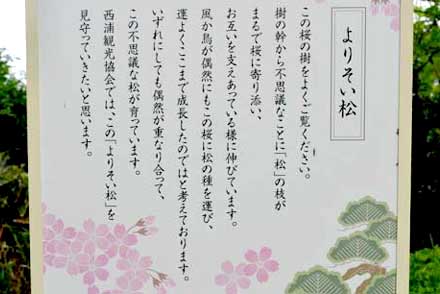 よりそい松
この桜の樹をよくご覧ください。
樹の幹から不思議なことに「松」の枝が
まるで桜に寄り添い、
お互いを支えあっている様に伸びています。
風か鳥が偶然にもこの桜に松の種を運び、
運よくここまで成長したのではと考えております。
いずれにしても偶然が重なり合って、
この不思議な松が育っています。
西浦観光協会では、この「よりそい松」を
見守っていきたいと思います。